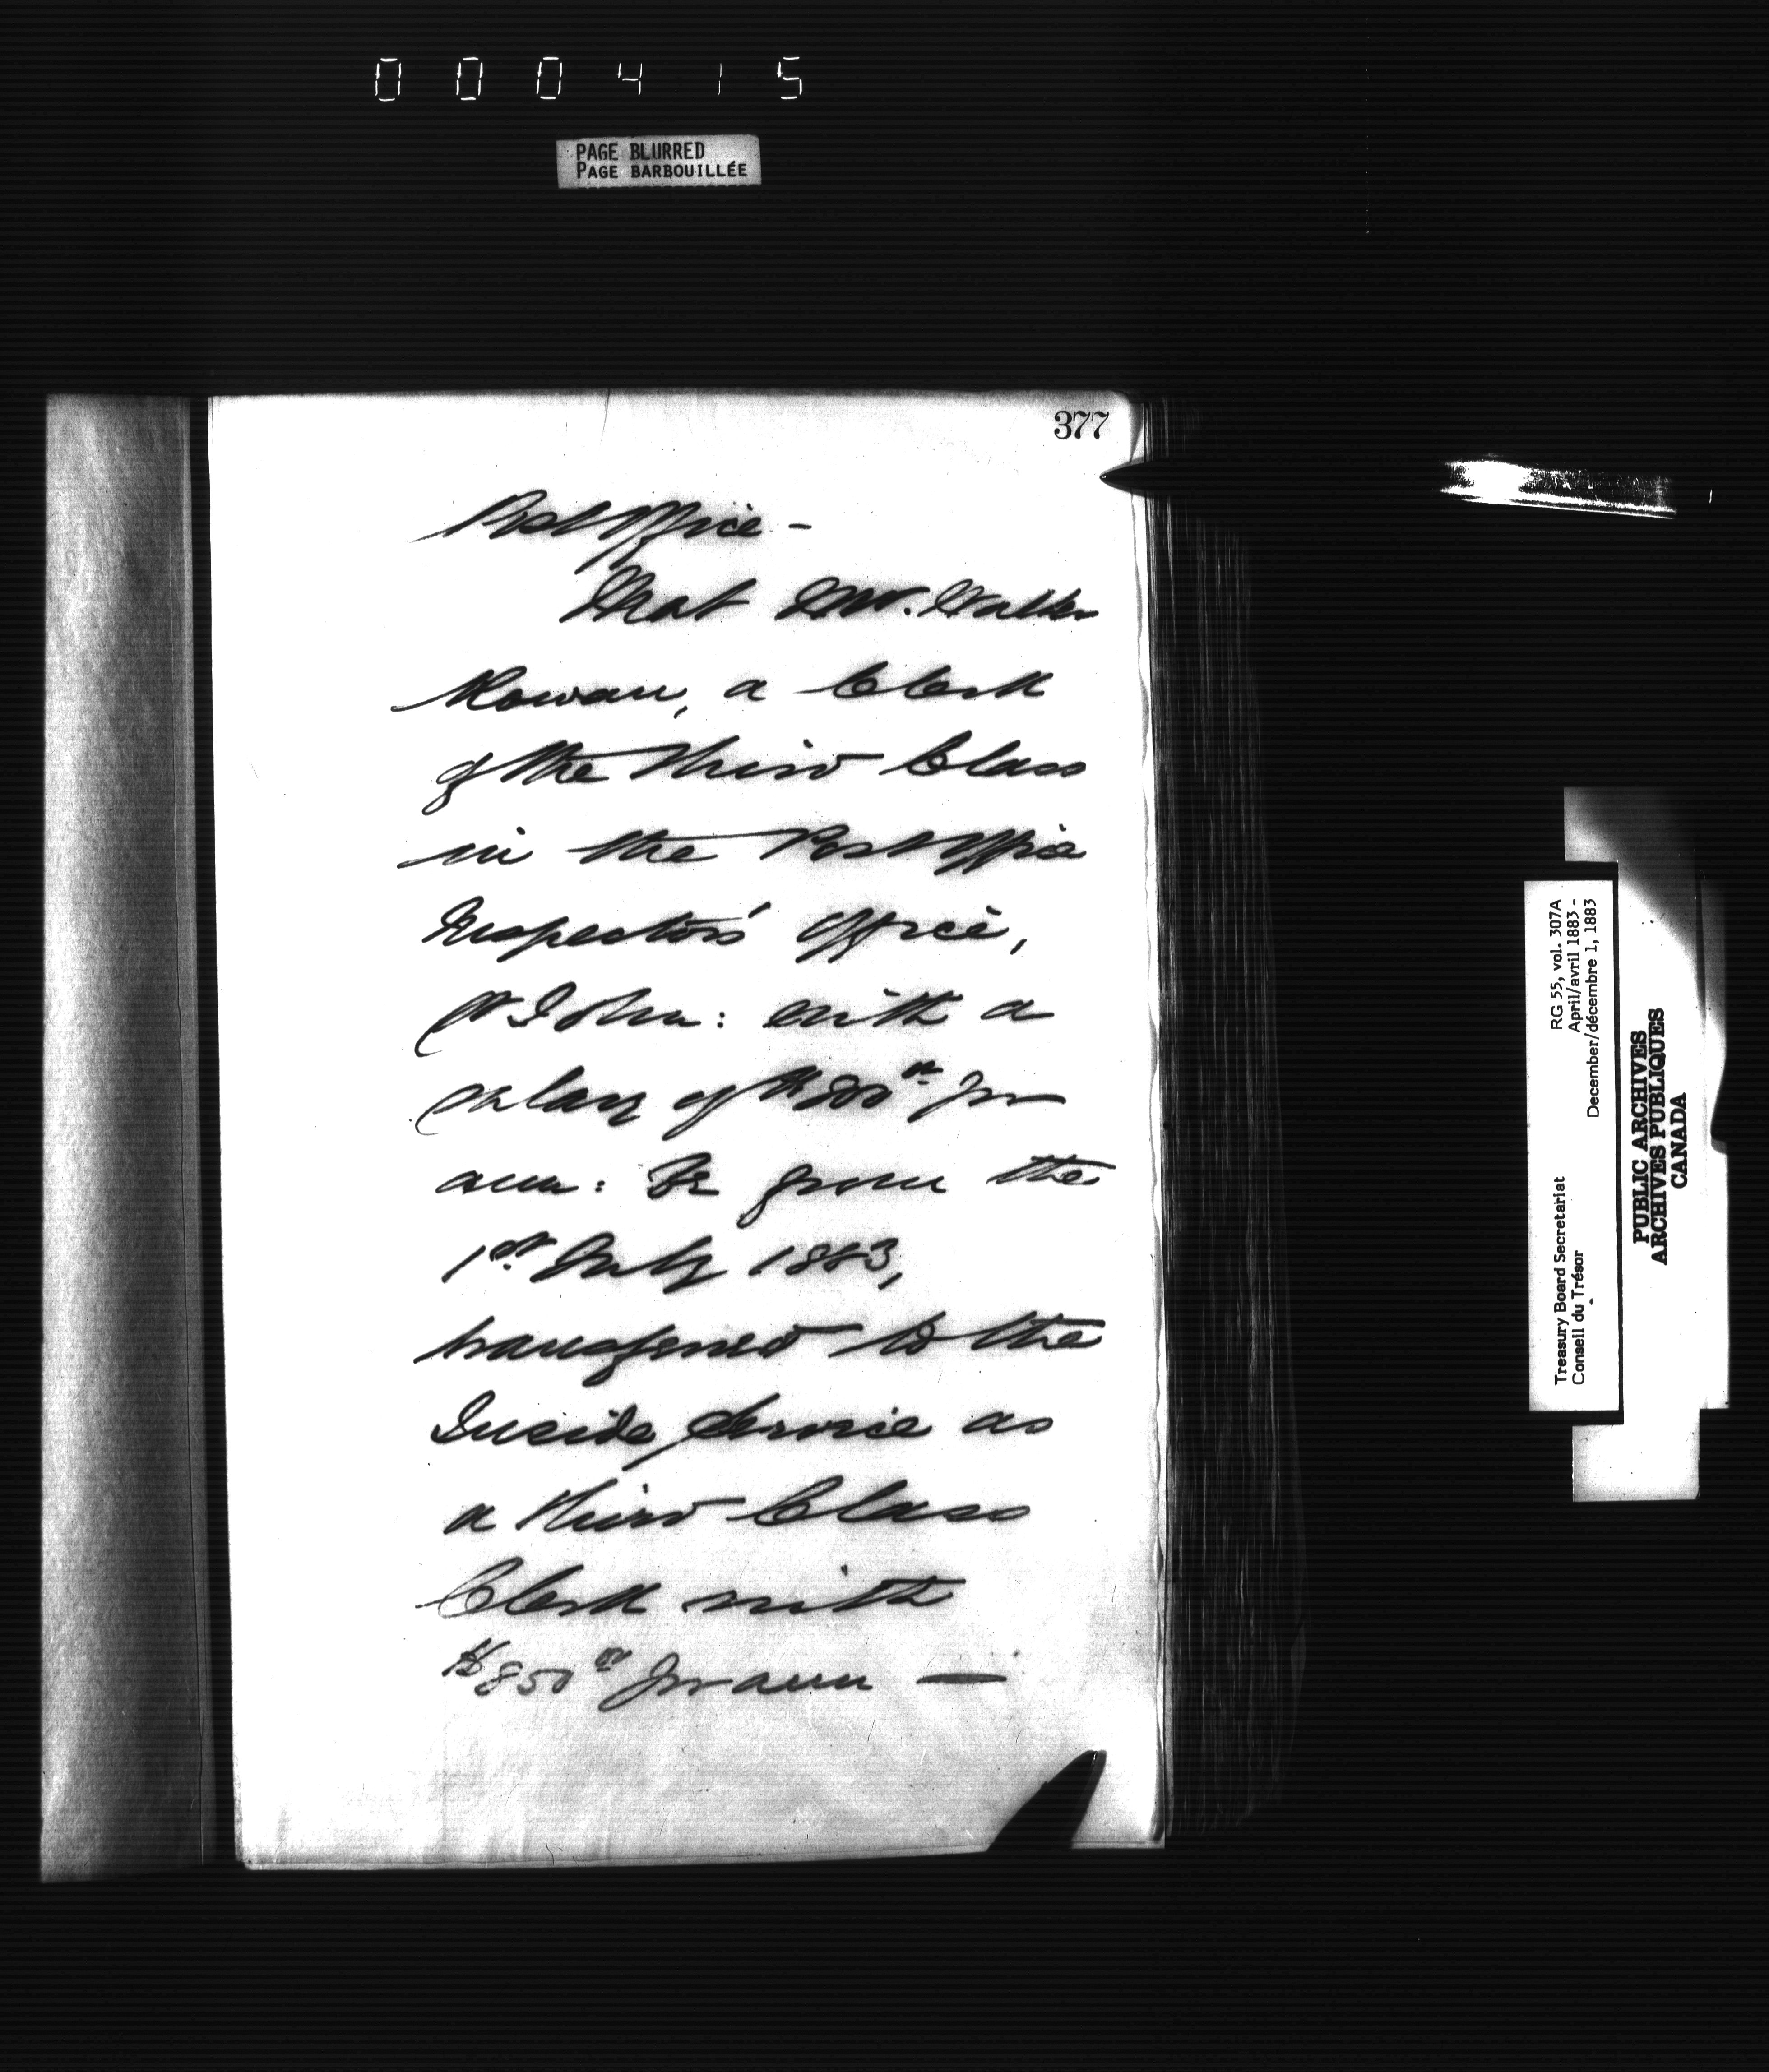 000415
PAGE BLURRED
PAGE BARBOUILLÉE
377
Post Office -
That Mr. Walter
Rowan, a Clerk
of the third Class
in the Post Office
Inspectors' Office,
St John: with a
salary of $800 00 per
ann: Be from the
1st July 1883,
transferred to the
Inside Service as
a third Class
Clerk with
$850 00 per ann —
Treasury Board Secretariat RG 55, vol. 307A
Conseil du Trésor April/avril 1883 -
December/décembre 1, 1883
PUBLIC ARCHIVES
ARCHIVES PUBLIQUES
CANADA